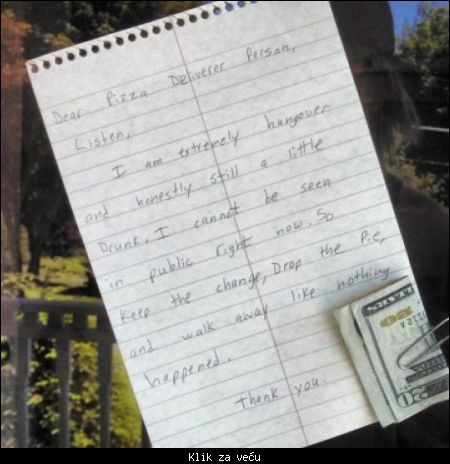 Dear Pizza Deliverer Person,
Listen,
I am extremely hungover
and honestly still a little
Drunk. I cannot be seen
in public right now. So
Keep the change, Drop the Pie,
and walk away like nothing
happened.
Thank you.
Klik za veću